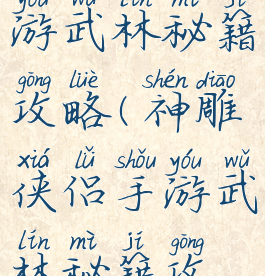 yóu wǔ lín mì jí
游武林秘籍
gōng lüè shén diāo
攻略(神雕
xiá lǚ shǒu yóu wǔ
侠侣手游武
lín mì jí gōng
林秘籍攻